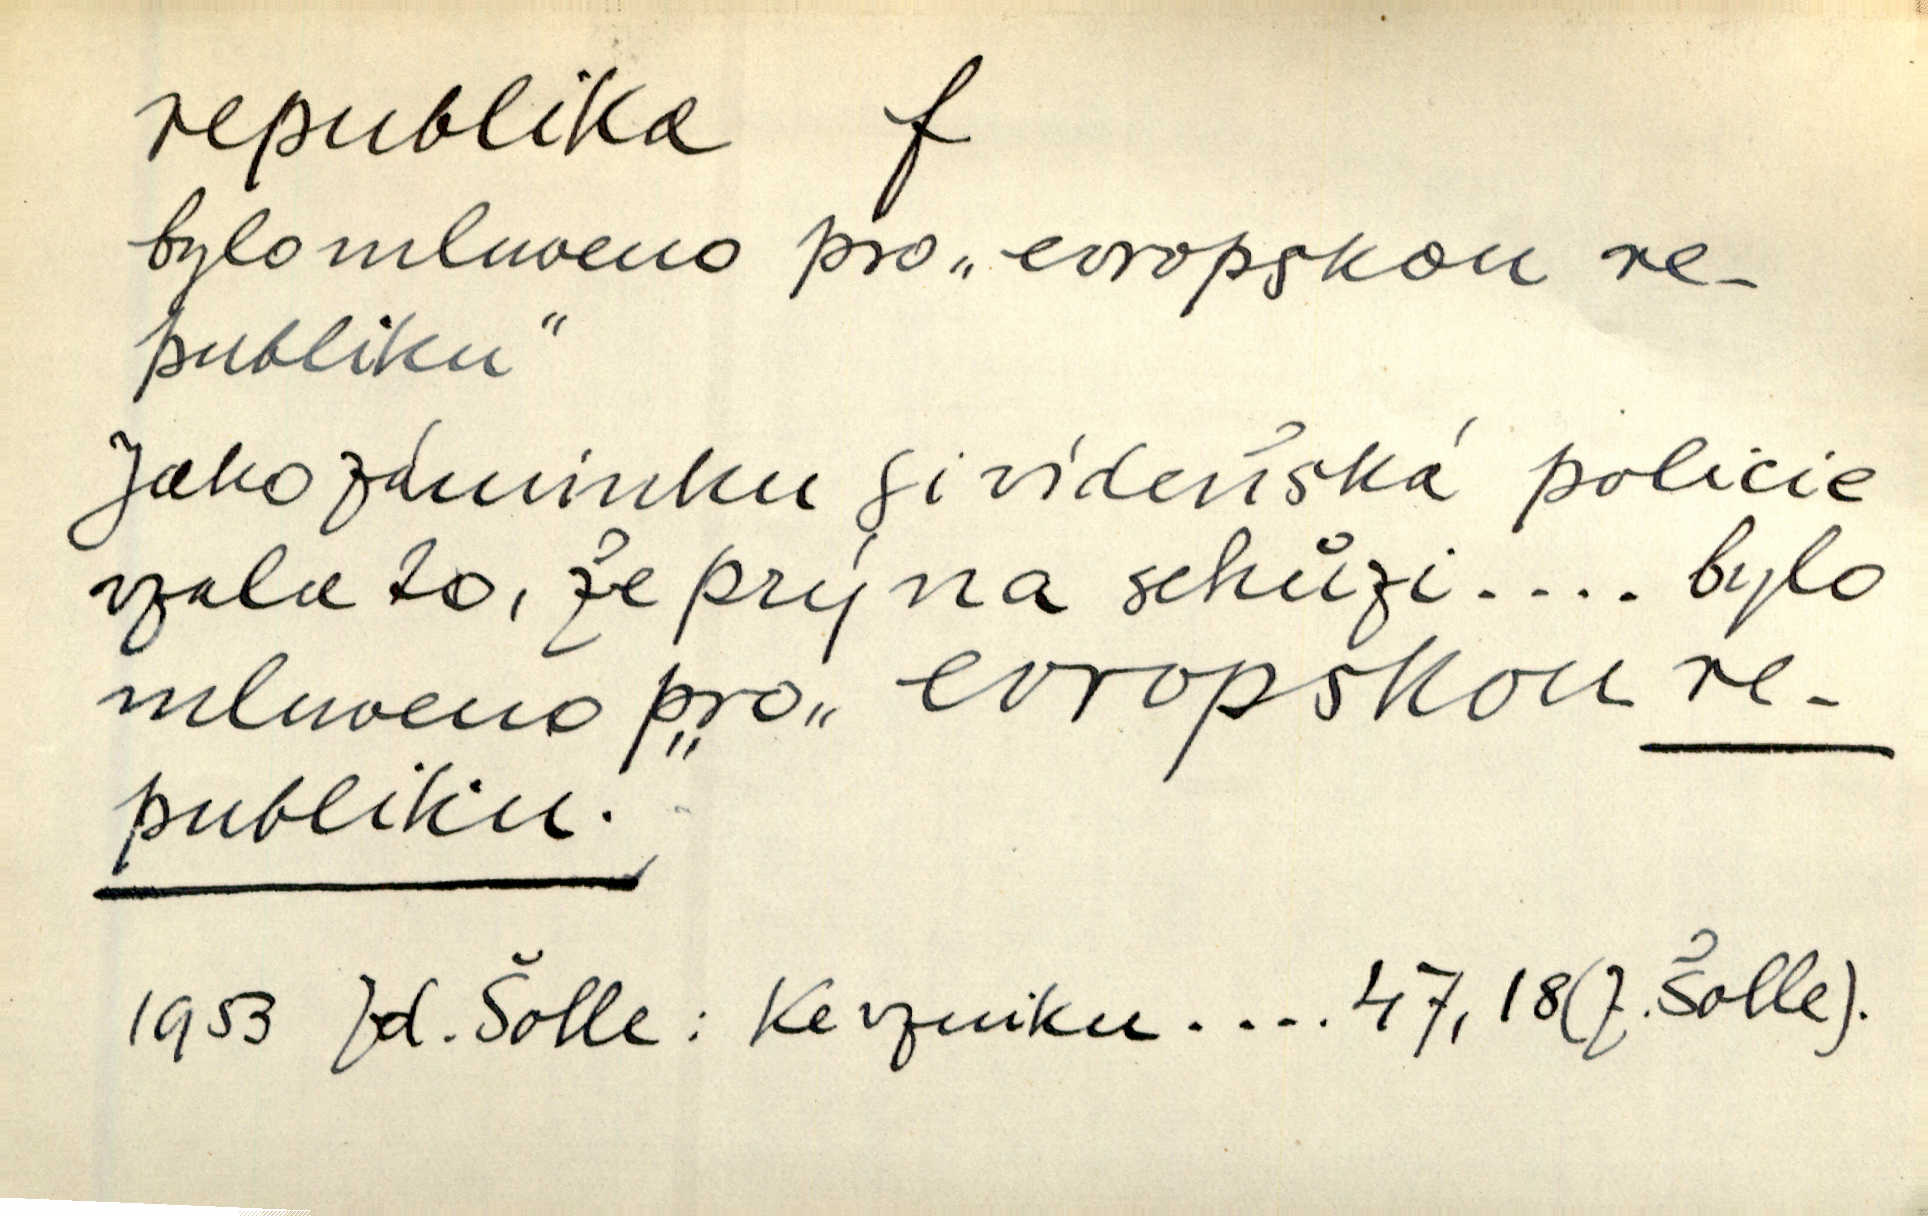 republika f
bylo mluveno pro „evropskou re-
publiku“
Jako záminku si vídeňská policie
vzala to, že prý na schůzi.... bylo
mluveno pro „evropskou re-
publiku.“
1953 Zd. Šolle: Ke vzniku.... 47, 18 (Z. Šolle).